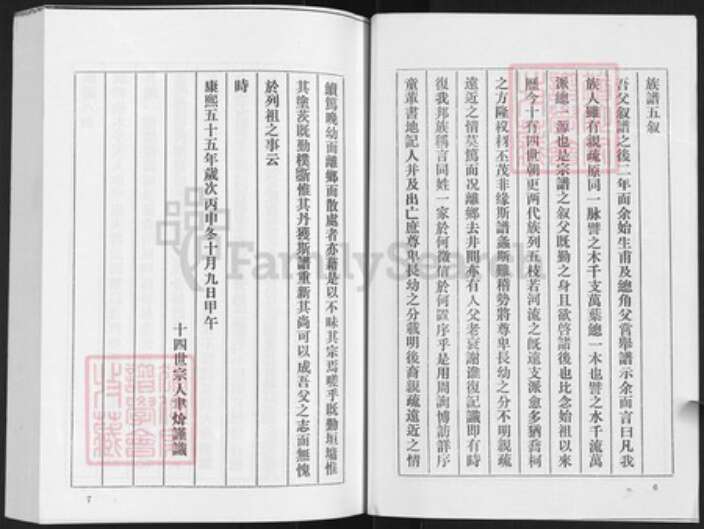 族譜五叙
吾父叙譜之後二年而余始生甫及總角父嘗舉譜示余而言曰凡我
族人雖有親疏原同一脉譬之木千支萬葉總一本也譬之水千流萬
派總一源也是宗譜之叙父既勤之身且欲啓諸後也比念始祖以來
歷今十有四世朝更两代族列五枝若河流之既遠支派愈多猶喬柯
之方隆枚桠丕茂非緣斯譜螽斯難稽勢將尊卑長幼之分不明親疏
遠近之情莫篤而况離鄉去井間亦有人父老衰謝誰復記識即有時
復我邦族稱言同姓一家於何徵信於何置序乎是用周詢博訪詳序
童輩書地記人并及出亡庶尊卑長幼之分載明後裔親疏遠近之情
續篤晚幼而離鄉而散處者亦藉是以不昧其宗焉嗟乎既勤垣墉惟
其塗茨既勤樸斲惟其丹雘斯譜重新其尚可以成吾父之志而無愧
於列祖之事云
時
康熙五十五年歲次丙申冬十月九日甲午
十四世宗人聿熗謹識
FamilySearch
6
7